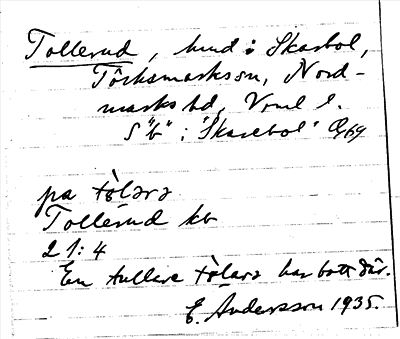 Tollerud, hmd i Skarbol,
Töcksmarks sn, Nord-
marks hd, Vrml l.
S "b" i "Skarebol"
pa tòlara
Tollerud kb
2 1:4
En tullare tòlara har bott där.
E. Andersson 1935.